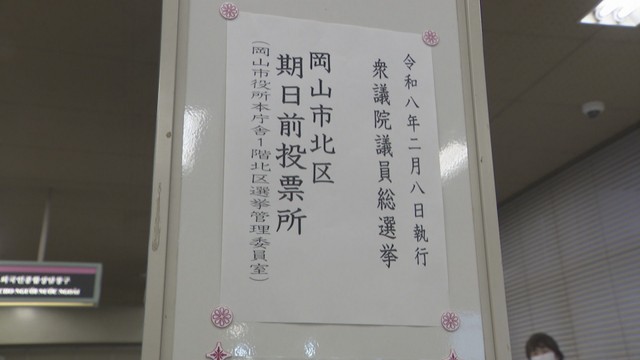 令和八年二月八日執行
衆議院議員総選挙
岡山市北区
期日前投票所
(岡山市役所本庁舎1階北区選挙管理委員会室)